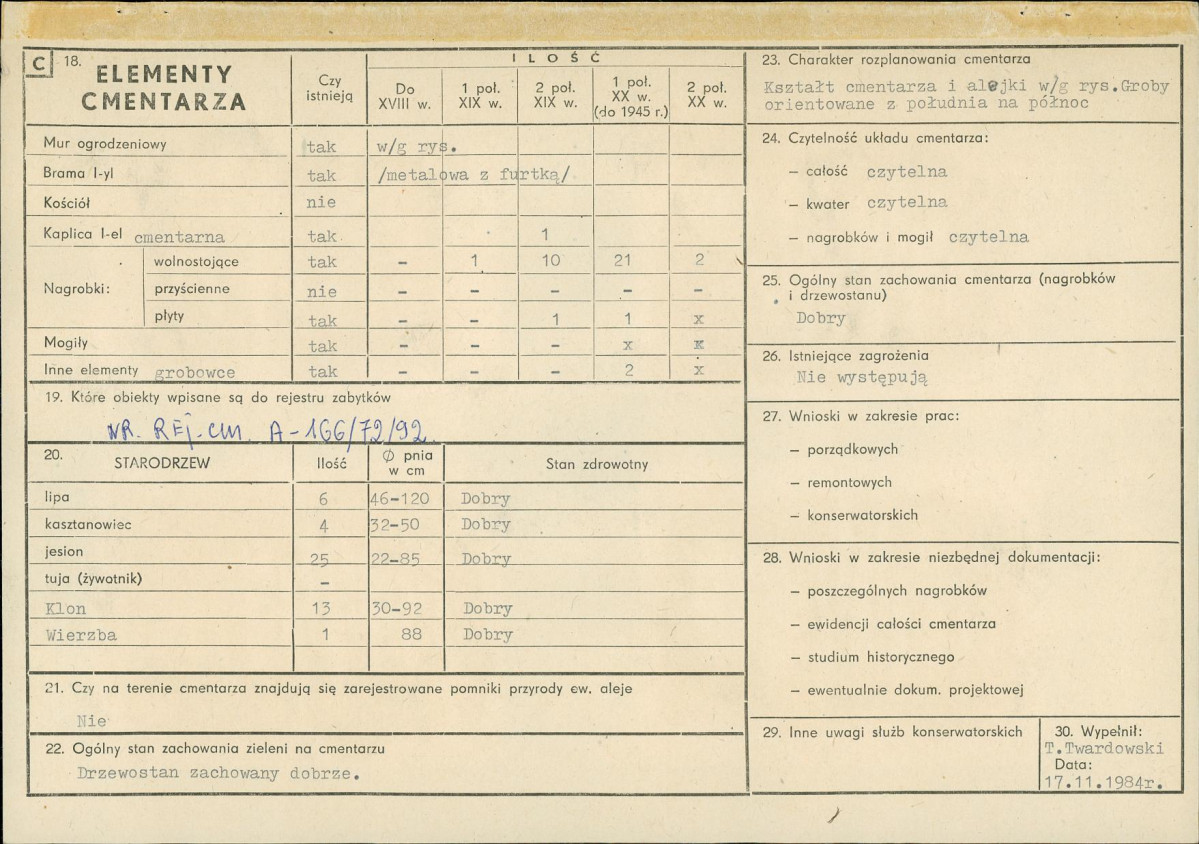 C 18. ELEMENTY CMENTARZA
Czy istnieją
ILOŚĆ
Do XVIII w.
1 poł. XIX w.
2 poł. XIX w.
1 poł. XX w. (do 1945 r.)
2 poł. XX w.
Mur ogrodzeniowy tak w/g rys.
Brama I-yl tak /metalowa z furtką/
Kościół nie
Kaplica I-el cmentarna tak 1
Nagrobki:
wolnostojące tak – 1 10 21 2
przyścienne nie – – – – –
płyty tak – – 1 1 x
Mogiły tak – – – x x
Inne elementy grobowce tak – – – 2 x
19. Które obiekty wpisane są do rejestru zabytków
NR. REJ. CM. A-166/72/92
20. STARODRZEW Ilość Ø pnia w cm Stan zdrowotny
lipa 6 46-120 Dobry
kasztanowiec 4 32-50 Dobry
jesion 25 22-85 Dobry
tuja (żywotnik) –
Klon 13 30-92 Dobry
Wierzba 1 88 Dobry
21. Czy na terenie cmentarza znajdują się zarejestrowane pomniki przyrody ew. aleje
Nie
22. Ogólny stan zachowania zieleni na cmentarzu
Drzewostan zachowany dobrze.
23. Charakter rozplanowania cmentarza
Kształt cmentarza i alejki w/g rys.Groby
orientowane z południa na północ
24. Czytelność układu cmentarza:
– całość czytelna
– kwater czytelna
– nagrobków i mogił czytelna
25. Ogólny stan zachowania cmentarza (nagrobków
i drzewostanu)
Dobry
26. Istniejące zagrożenia
Nie występują
27. Wnioski w zakresie prac:
– porządkowych
– remontowych
– konserwatorskich
28. Wnioski w zakresie niezbędnej dokumentacji:
– poszczególnych nagrobków
– ewidencji całości cmentarza
– studium historycznego
– ewentualnie dokum. projektowej
29. Inne uwagi służb konserwatorskich
30. Wypełnił:
T.Twardowski
Data:
17.11.1984r.